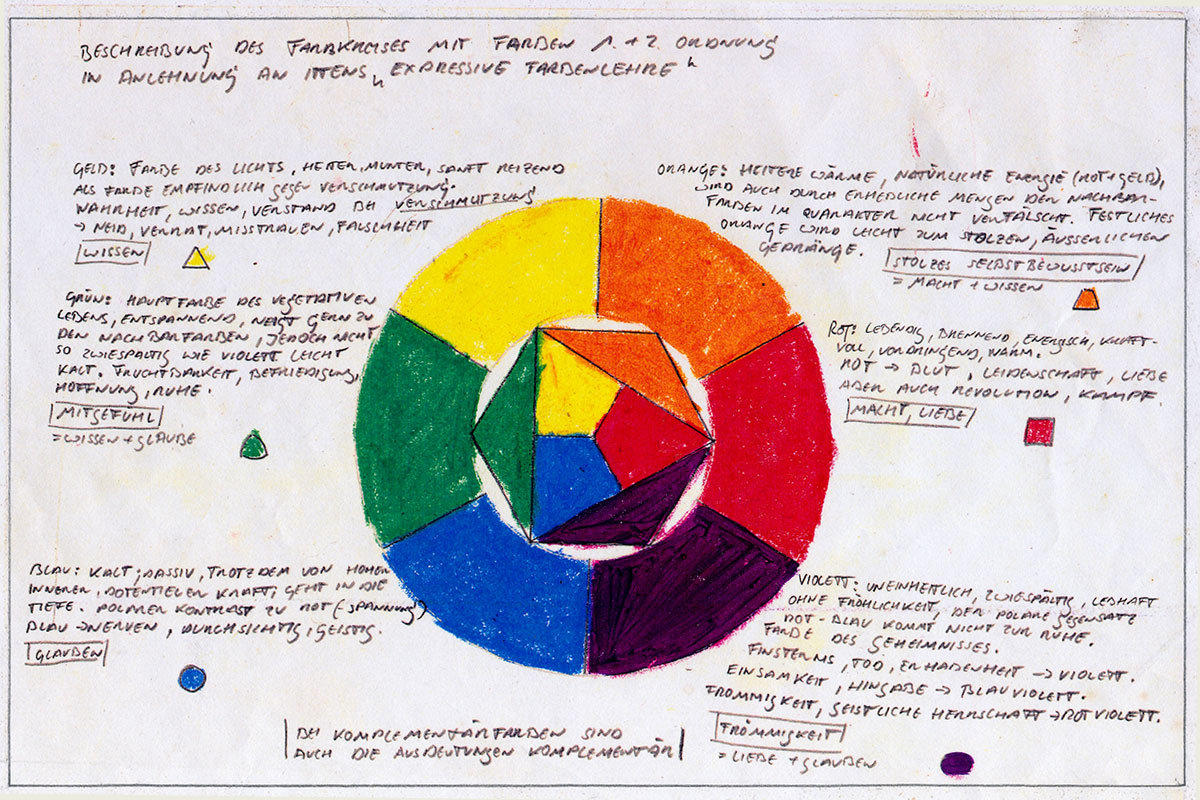 BESCHREIBUNG DES FARBKREISES MIT FARBEN 1. + 2. ORDNUNG
IN ANLEHNUNG AN ITTENS „EXPRESSIVE FARBENLEHRE“
GELB: FARBE DES LICHTS, HEITER, MUNTER, SANFT REIZEND
ALS FARBE EMPFINDLICH GEGEN VERSCHMUTZUNG.
WAHRHEIT, WISSEN, VERSTAND BEI VERSCHMUTZUNG
→ NEID, VERRAT, MISSTRAUEN, FALSCHHEIT
WISSEN
GRÜN: HAUPTFARBE DES VEGETATIVEN
LEBENS, ENTSPANNEND, NEIGT GERN ZU
DEN NACHBARFARBEN, JEDOCH NICHT
SO ZWIESPÄLTIG WIE VIOLETT LEICHT
KALT. FRUCHTBARKEIT, BEFRIEDIGUNG,
HOFFNUNG, RUHE.
MITGEFÜHL
= WISSEN + GLAUBE
BLAU: KALT, PASSIV, TROTZDEM VON HOHER
INNERER, POTENTIELER KRAFT; GEHT IN DIE
TIEFE. POLARER KONTRAST ZU ROT (SPANNUNG)
BLAU → NERVEN, DURCHSICHTIG, GEISTIG.
GLAUBEN
ORANGE: HEITERE WÄRME, NATÜRLICHE ENERGIE (ROT + GELB),
WIRD AUCH DURCH ERHEBLICHE MENGEN DER NACHBAR-
FARBEN IM QUARAKTER NICHT VERFÄLSCHT. FESTLICHES
ORANGE WIRD LEICHT ZUM STOLZEN, ÄUSSERLICHEN
GEPRÄNGE.
STOLZES SELBSTBEWUSSTSEIN
= MACHT + WISSEN
ROT: LEBENDIG, BRENNEND, ENERGISCH, KRAFT-
VOLL, VORDRINGEND, WARM.
ROT → BLUT, LEIDENSCHAFT, LIEBE
ABER AUCH REVOLUTION, KAMPF.
MACHT, LIEBE
VIOLETT: UNEINHEITLICH, ZWIESPÄLTIG, LEBHAFT
OHNE FRÖHLICHKEIT, DER POLARE GEGENSATZ
ROT - BLAU KOMMT NICHT ZUR RUHE.
FARBE DES GEHEIMNISSES.
FINSTERNIS, TOD, ERHABENHEIT → VIOLETT.
EINSAMKEIT, HINGABE → BLAUVIOLETT.
FRÖMMIGKEIT, GEISTLICHE HERRSCHAFT → ROTVIOLETT.
FRÖMMIGKEIT
= LIEBE + GLAUBEN
BEI KOMPLEMENTÄRFARBEN SIND
AUCH DIE AUSDEUTUNGEN KOMPLEMENTÄR